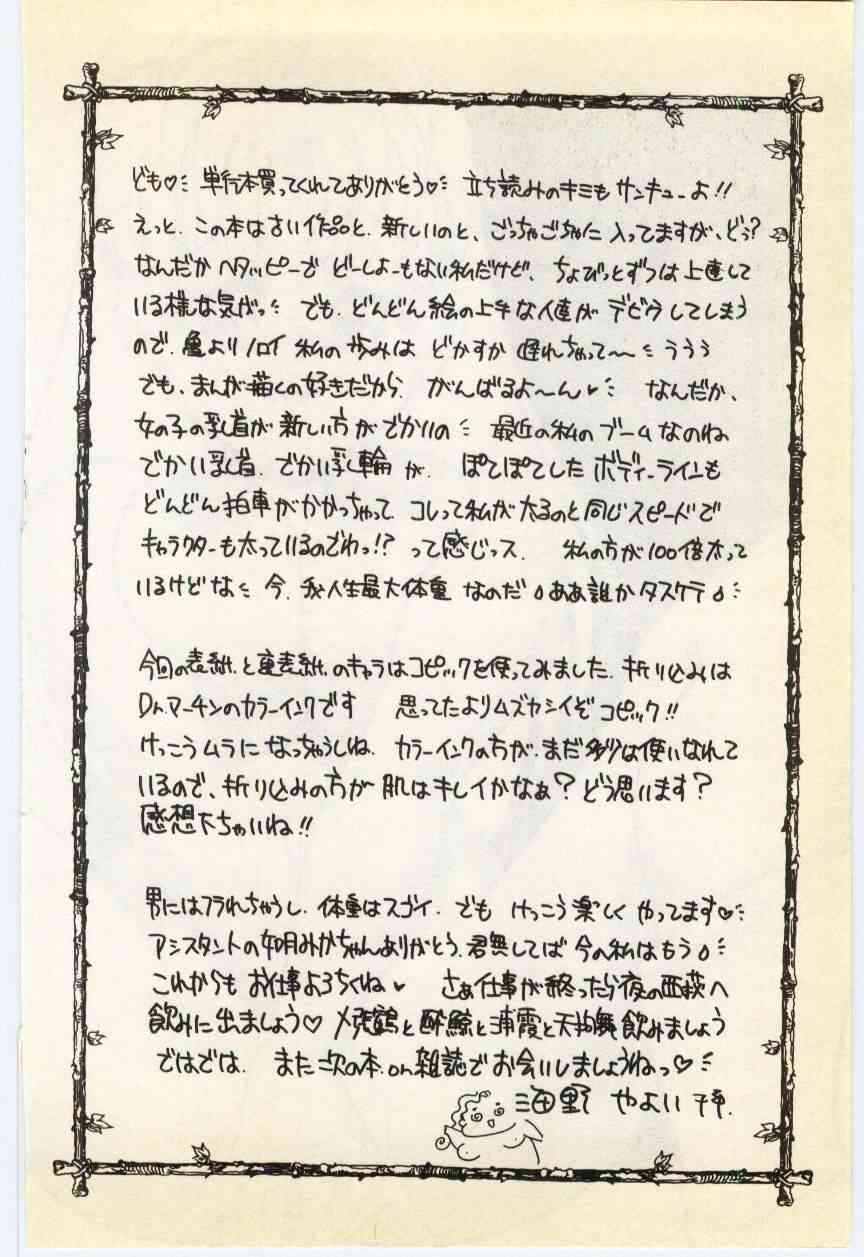 ども♡ 単行本買ってくれてありがとう♡ 立ち読みのキミも サンキューよ!!
えっと、この本は古い作品と、新しいのと、ごっちゃごちゃに入ってますが、どう?
なんだか ヘタッピーで どーしよーもない私だけど、ちょびっとずつは上達して
いる様な気がっ でも、どんどん絵の上手な人達が デビウしてしまう
ので、亀よりノロイ 私の歩みは どかすか 遅れちゃって〜 ううう
でも、まんが描くの好きだから、がんばるよ〜ん♥ なんだか、
女の子の乳首が新しい方がでかいの 最近の私のブームなのね
でかい乳首、でかい乳輪が、ぽてぽてした ボディ-ラインも
どんどん拍車がかかっちゃって、コレって私が太るのと同じスピードで
キャラクターも太っているのでわっ!? って感じっス、 私の方が100倍太って
いるけどな 今、我人生最大体重 なのだ ああ誰かタスケテ
今回の表紙と裏表紙のキャラはコピックを使ってみました、折り込みは
Dr.マーチンのカラーインクです 思ってたよりムズカシイぞ コピック!!
けっこうムラになっちゃうしね、カラーインクの方が、まだ多少は使いなれて
いるので、折り込みの方が 肌はキレイかなぁ? どう思います?
感想下ちゃいね!!
男にはフラれちゃうし、体重はスゴイ、でも けっこう楽しく やってます♡
アシスタントの如月みかちゃんありがとう、君無しでは 今の私はもう
これからも お仕事よろちくね♥ さあ仕事が終ったら夜の西荻へ
飲みに出ましょう♡ 〆張鶴と酔鯨と浦霞と天狗舞飲みましょう
ではでは、また次の本 on 雑誌でお会いしましょうねっ♡
海野 やよい 拝.